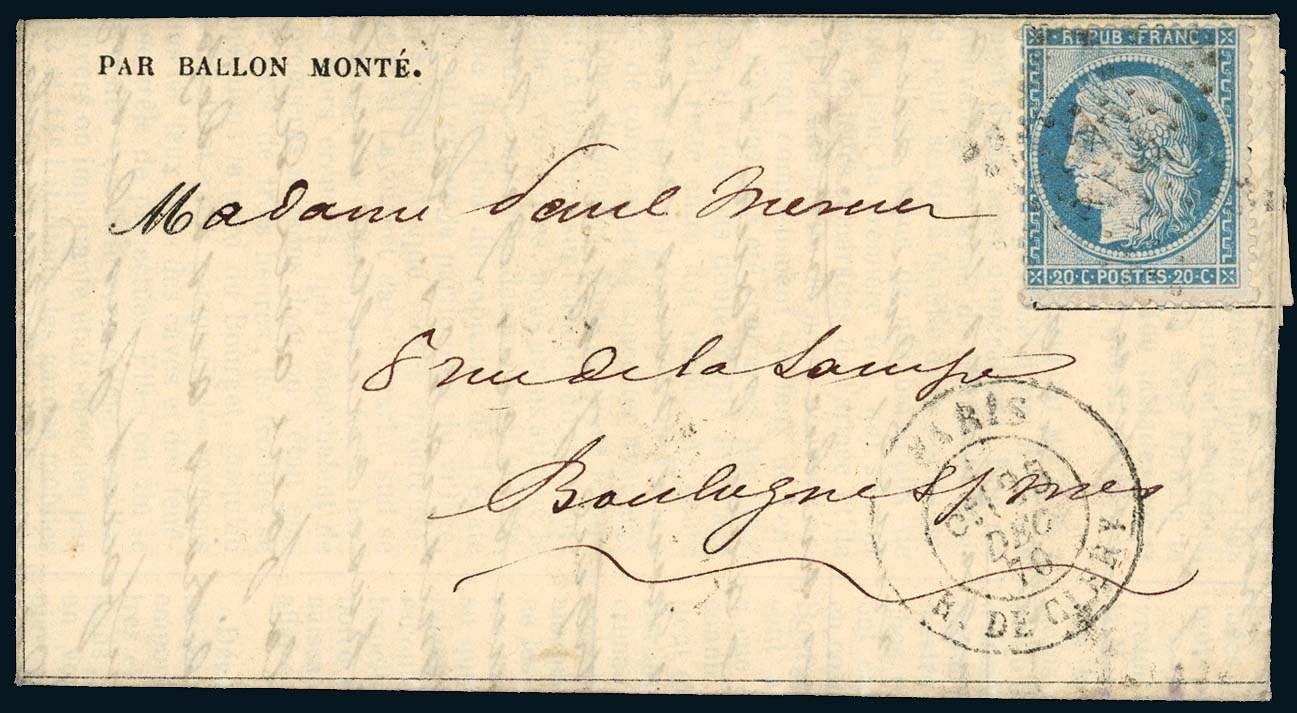 PAR BALLON MONTÉ.
REPUB FRANC
Madame Paul Mercier
8 rue de la Lampe
20·C·POSTES·20·C
Boulogne s/ mer
PARIS
DEC
70
R. DE CLERY